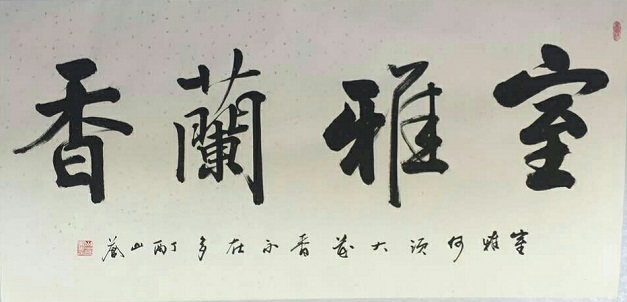 室雅蘭香
室雅何須大花香不在多丁酉山